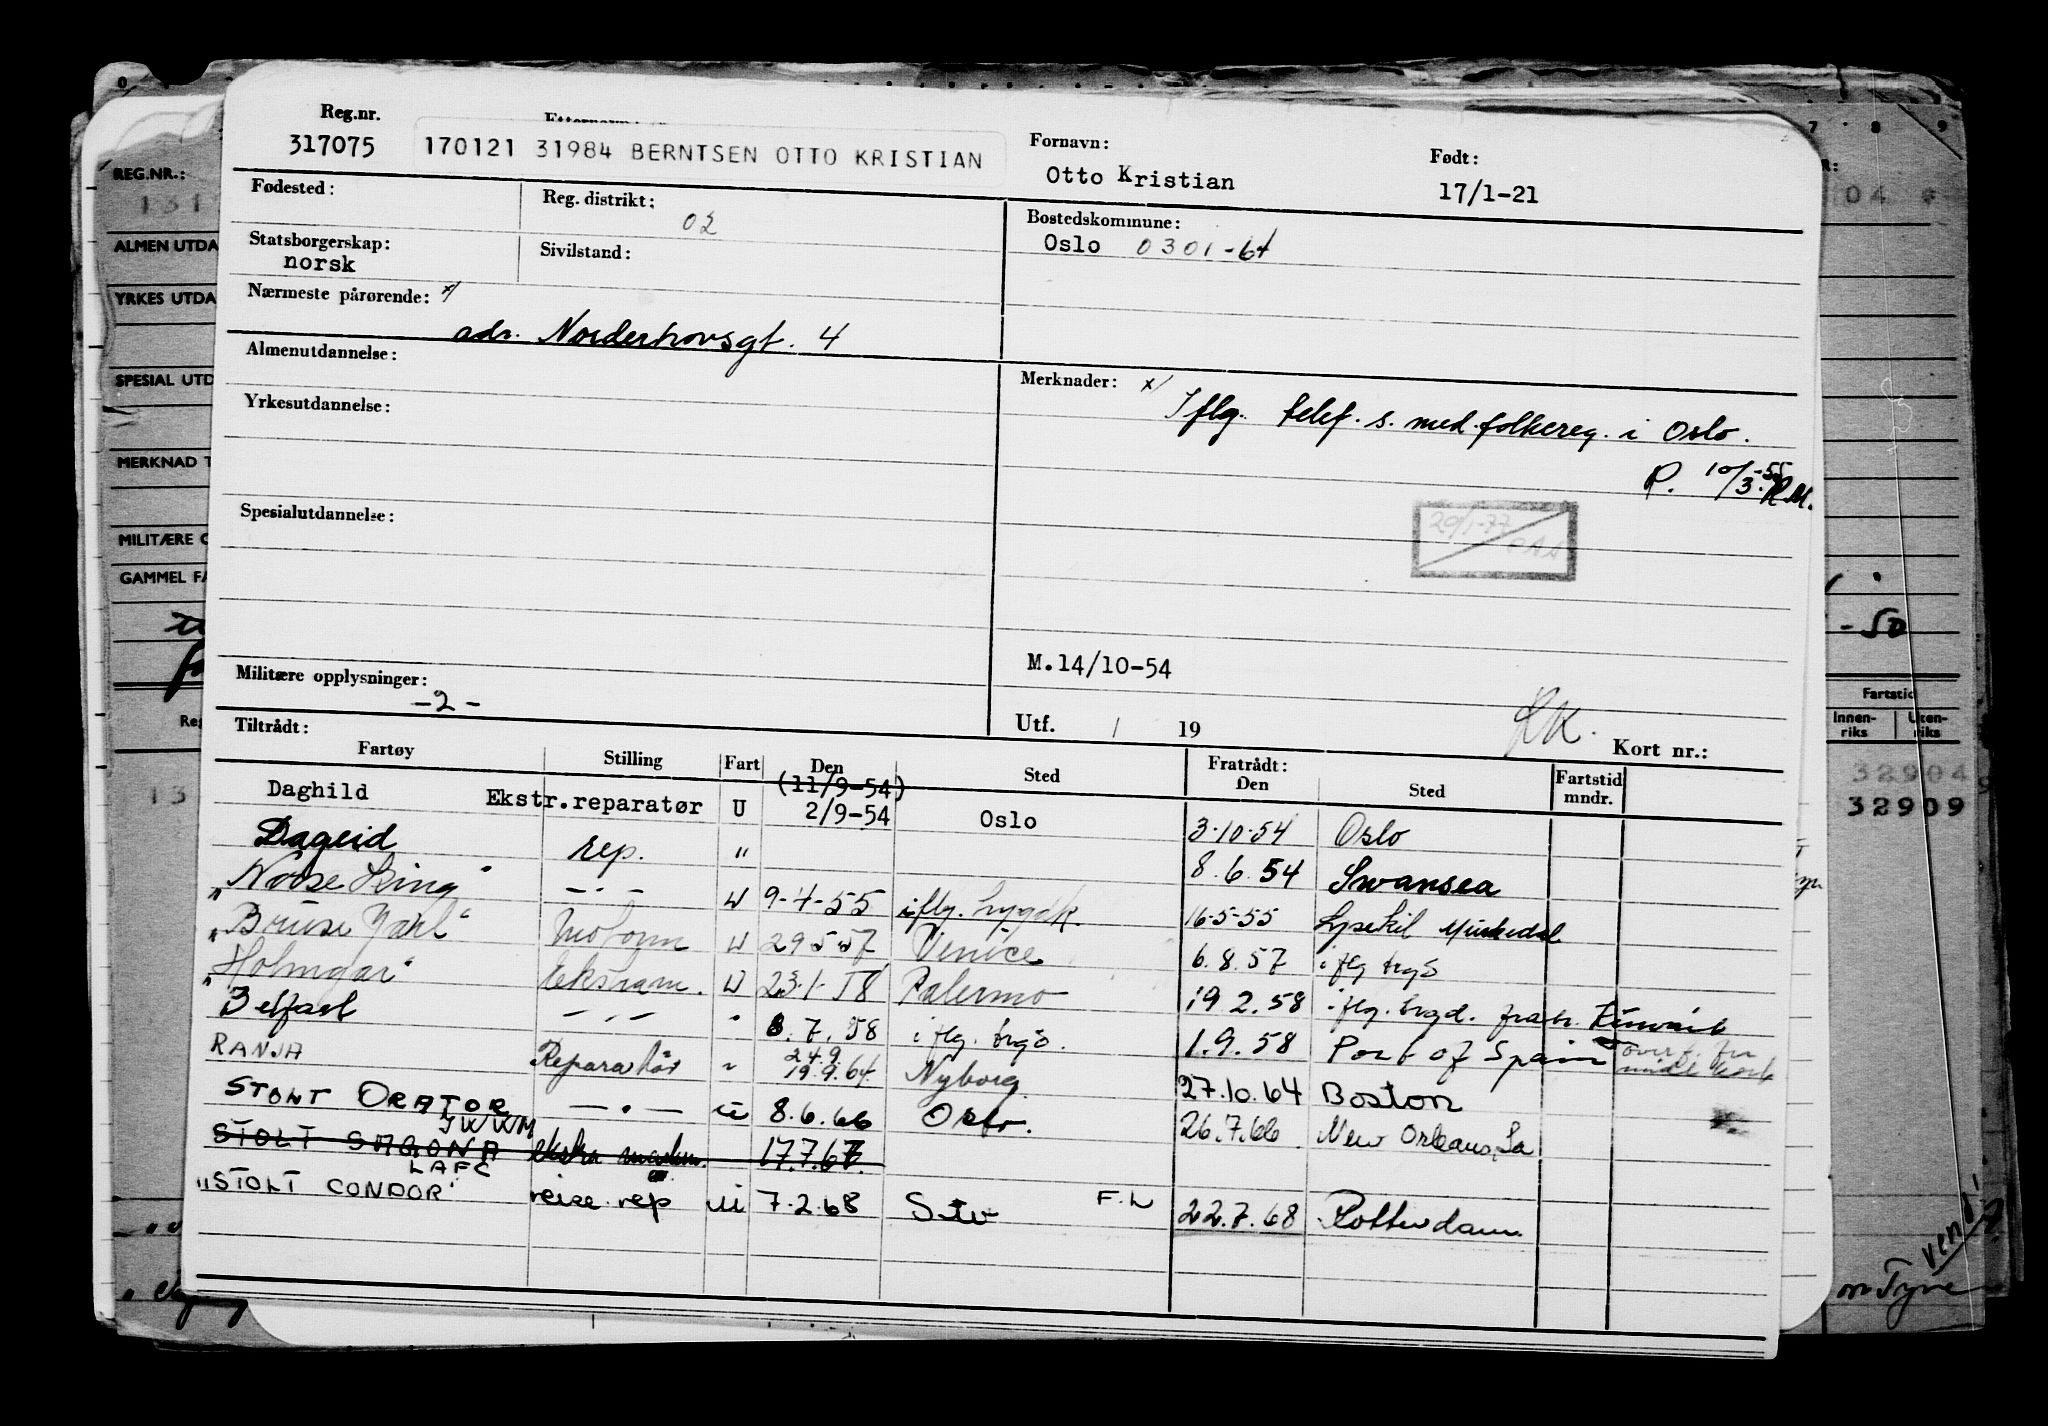 Reg.nr.
317075
170121 31984 BERNTSEN OTTO KRISTIAN
Fornavn:
Otto Kristian
Født:
17/1-21
Fødested:
Reg. distrikt:
02
Bostedskommune:
Oslo 0301-64
Statsborgerskap:
norsk
Sivilstand:
Nærmeste pårørende: x/
adr. Norderhovsgt. 4
Almenutdannelse:
Merknader: x/
Iflg. telef. s. med folkereg. i Oslo.
P. 10/3-55 R.M.
Yrkesutdannelse:
Spesialutdannelse:
29/1-77
M.14/10-54
Militære opplysninger:
-2-
Utf. / 19
Kort nr.:
Tiltrådt:
Fartøy Stilling Fart Den Sted Fratrådt: Den Sted Fartstid mndr.
Daghild Ekstr.reparatør U (11/9-54) 2/9-54 Oslo 3-10-54 Oslo
Dageid rep. " 8.6.54 Swansea
"Norse King" -.- U 9-4-55 iflg. 16-5-55 Lysekil
"Bruse Jarl" U 29.5.57 Venice 6.8.57 iflg
"Holmgar" U 23.1.58 Palermo 19.2.58 iflg.
Belfast -.- " 8.7.58 iflg. 1.9.58 Port of Spain
RANJA Reparatør " 24.9. 19.9.64 Nyborg 27.10.64 Boston
STOLT ORATOR -.- 8.6.66 Oslo. 26.7.66 New Orleans, La
JWWM
STOLT SAGONA ekstra 17.7.67
LAFC
"STOLT CONDOR" reise rep 7.2.68 F.L 22.7.68 Rotterdam
REG.NR.:
ALMEN UTDA
YRKES UTDA
SPESIAL UTD
MERKNAD T
MILITÆRE O
GAMMEL FA
Reg
7 8 9
04
-50
Fartstid
Innen-riks
Uten-riks
32904
32909